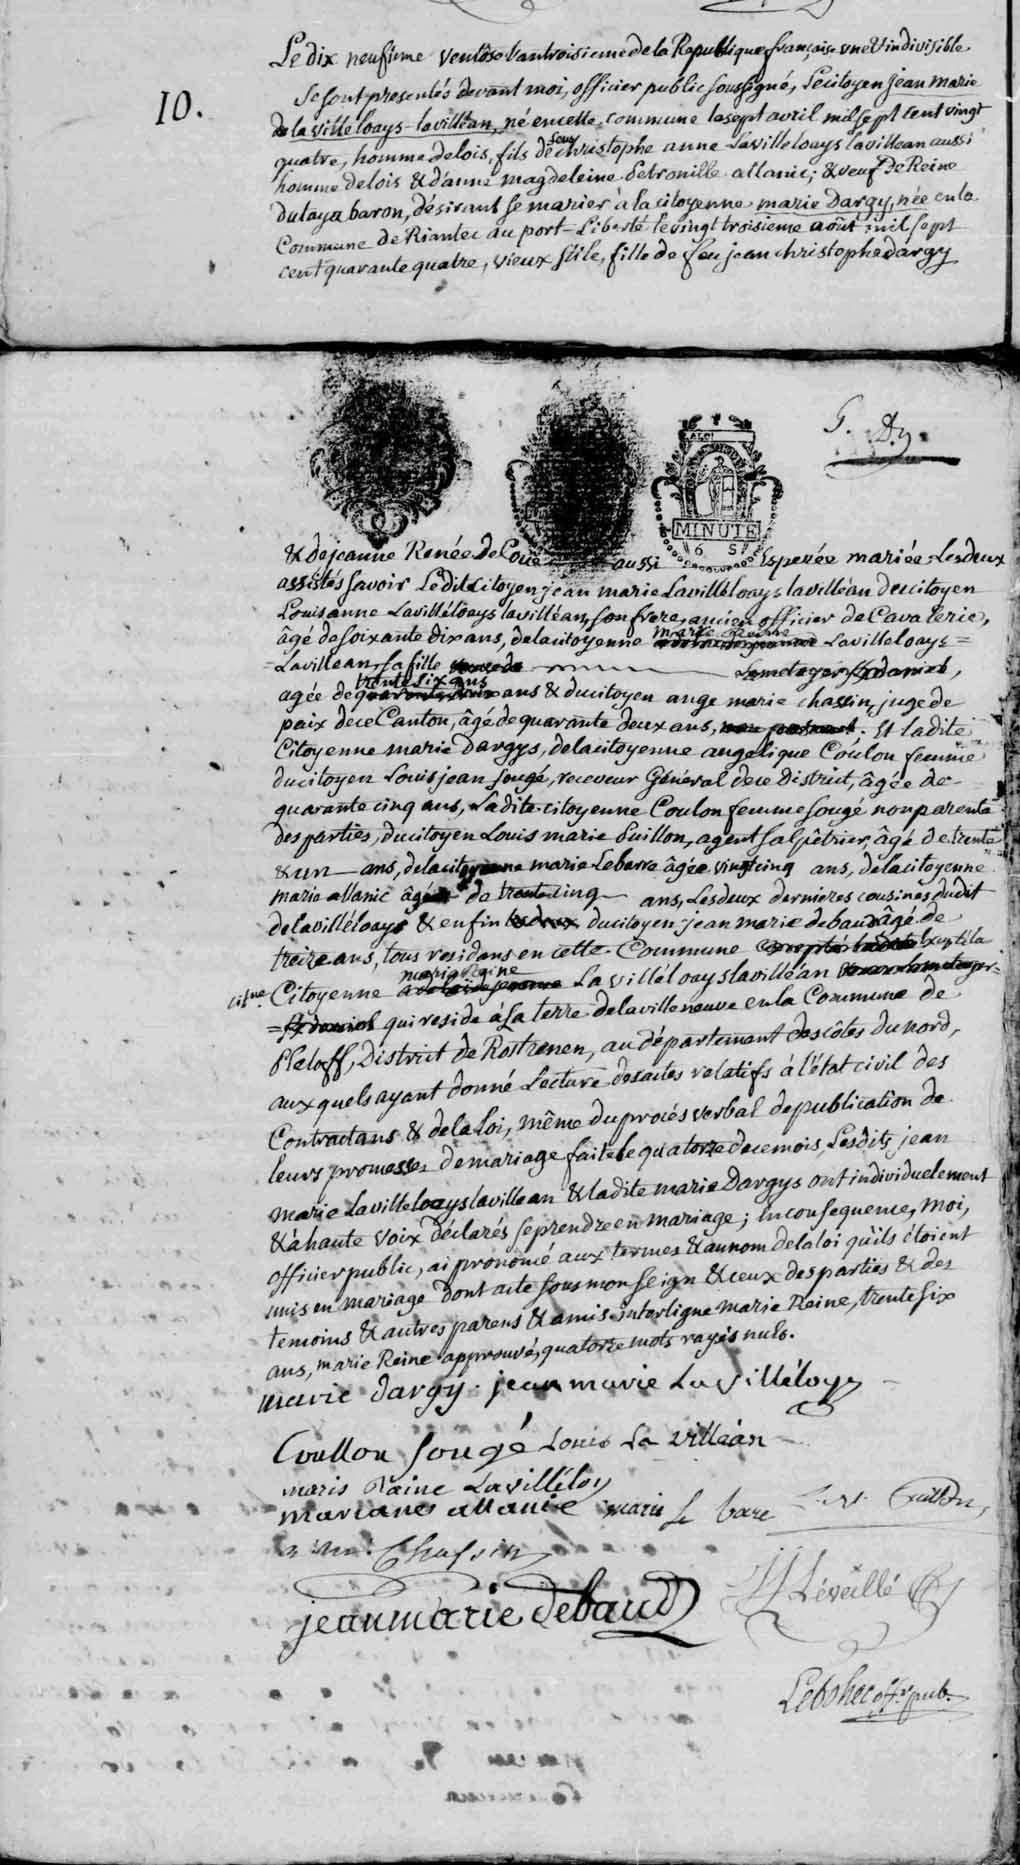 Le dix neufieme ventôse l'an troisieme de la Republique française une & indivisible
10.
Se sont presentés devant moi, officier public soussigné, Le citoyen jean marie
de la villeloays-lavilléan, né en cette commune le sept avril mil sept cent vingt
quatre, homme de lois, fils de feu christophe anne Lavillelouys lavillean aussi
homme de lois & d'anne magdeleine Petronille allanic; & veuf De Reine
dutaya baron, désirant se marier à la citoyenne marie Dargy, née en la
Commune de Riantec au port-Liberté le vingt troisieme août mil sept
cent quarante quatre, vieux stile, fille de feu jean christophe dargy
G. D.y
MINUTE
6 S
& de jeanne Renée de Coue aussi Esperée mariée. Les deux
assistés savoir Le dit citoyen jean marie Lavilléloays lavilléan du citoyen
Louis anne Lavilléloays lavilléan, son frere, ancien officier de Cavalerie,
âgé de soixante dix ans, de la citoyenne marie Reine Lavilleloays=
=Lavillean, sa fille
agée de trente six ans ans & du citoyen ange marie chassin, juge de
paix de ce Canton, âgé de quarante deux ans, . Et la dite
Citoyenne marie Dargys, de la citoyenne angelique Coulon femme
du citoyen Louis jean sougé, receveur Général de ce District, âgée de
quarante cinq ans, Ladite citoyenne Coulon femme Sougé non parente
des parties, du citoyen Louis marie Guillon, agent salpêtrier, âgé de trente
& un ans, de la citoyenne marie Lebarre âgée vingt cinq ans, de la citoyenne
marie allanic âgée de trente cinq ans, Les deux dernieres cousines du dit
de lavilléloays & enfin du citoyen jean marie debaud âgé de
treize ans, tous residans en cette Commune Excepté la
Citoyenne marie Reine La villéloays lavilléan
qui reside à sa terre de la ville neuve en la Commune de
Pleloff, District de Rostrenen, au département des côtes du nord,
aux quels ayant donné Lecture des actes relatifs à l'état civil des
Contractans & de la loi, même du procés verbal de publication de
leurs promesses de mariage faite le quatorze de ce mois, Lesdits jean
marie Lavilleloays lavillean & ladite marie Dargys ont individuelement
& à haute voix déclarés se prendre en mariage; en consequence, Moi,
officier public, ai prononcé aux termes & au nom de la loi qu'ils étoient
unis en mariage dont acte sous mon seign & ceux des parties & des
temoins & autres parens & amis. interligne marie Reine, trente six
ans, marie Reine approuvé, quatorze mots rayés nuls.
marie dargy. jean marie Lavilléloys
Coullon sougé Louis La villéan
marie Raine Lavilléloy
marianes allanice marie Le bare L. M. Guillon
Chassin
jean marie debaud Léveillé
off.r pub.